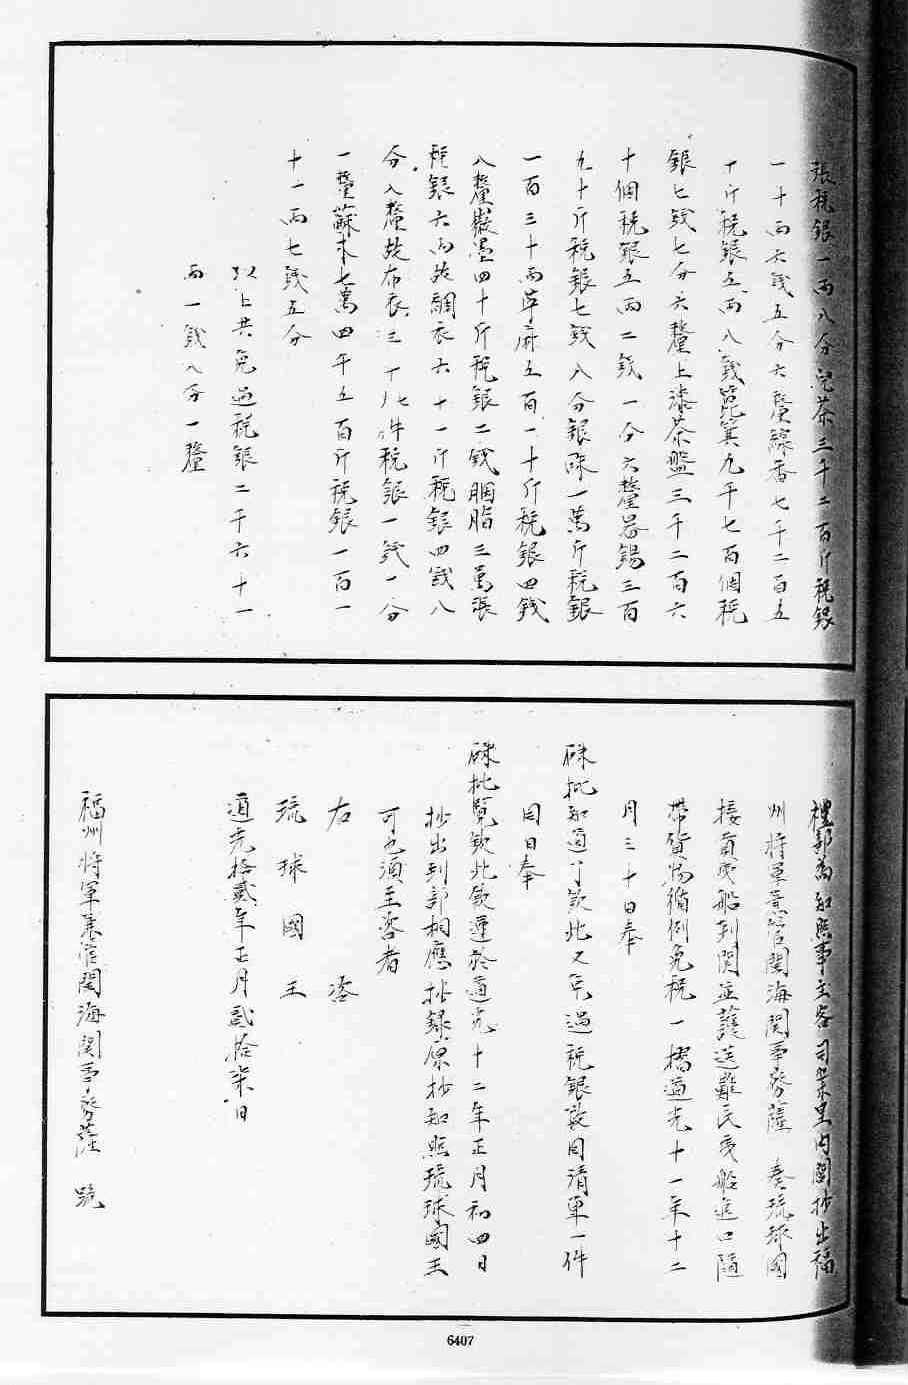 張稅銀一兩八分粗茶三千二百斤稅銀
一十兩六錢五分六釐線香七千二百五
十斤稅銀五兩八錢箆箕九千七百個稅
銀七錢七分六釐上漆茶盤三千二百六
十個稅銀五兩二錢一分六釐器錫三百
九十斤稅銀七錢八分銀硃一萬斤稅銀
一百三十兩苧麻五百一十斤稅銀四錢
八釐徽墨四十斤稅銀二錢胭脂三萬張
稅銀六兩故綢衣六十一斤稅銀四錢八
分八釐故布衣三十七件稅銀一錢一分
一釐蘇木七萬四千五百斤稅銀一百一
十一兩七錢五分
以上共免過稅銀二千六十一
兩一錢八分一釐
禮部為知照事主客司案呈內閣抄出福
州將軍兼管閩海關事務薩 奏琉球國
接貢頭船到關並護送難民頭船進口隨
帶貨物循例免稅一摺道光十一年十二
月三十日奉
硃批知道了欽此又免過稅銀數目清單一件
同日奉
硃批覽欽此欽遵於道光十二年正月初四日
抄出到部相應抄錄原抄知照琉球國王
可也須至咨者
右 咨
琉球國王
道光拾貳年正月貳拾柒日
福州將軍兼管閩海關事務薩 跪